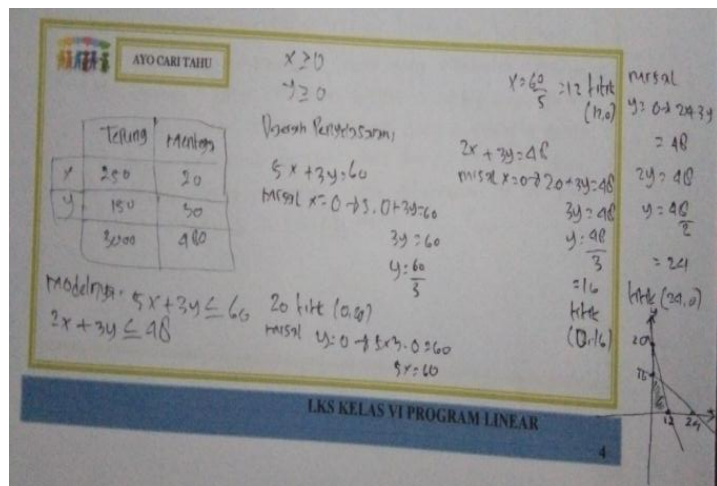 AYO CARI TAHU
x ≥ 0
y ≥ 0
Tepung Mentega
x 250 20
y 150 30
3000 480
Modelnya: 5x + 3y ≤ 60
2x + 3y ≤ 48
Daerah Penyelesaian,
5x + 3y = 60
misal x = 0 → 5.0 + 3y = 60
3y = 60
y = 60/3
20 titik
misal y = 0 → 5x + 3.0 = 60
5x = 60
x = 60/5 = 12 titik
(12,0)
2x + 3y = 48
misal x = 0 → 2.0 + 3y = 48
3y = 48
y = 48/3
= 16
titik
(0,16)
misal
= 48
= 24
titik (24,0)
y
20
12 24
LKS KELAS VI PROGRAM LINEAR
4